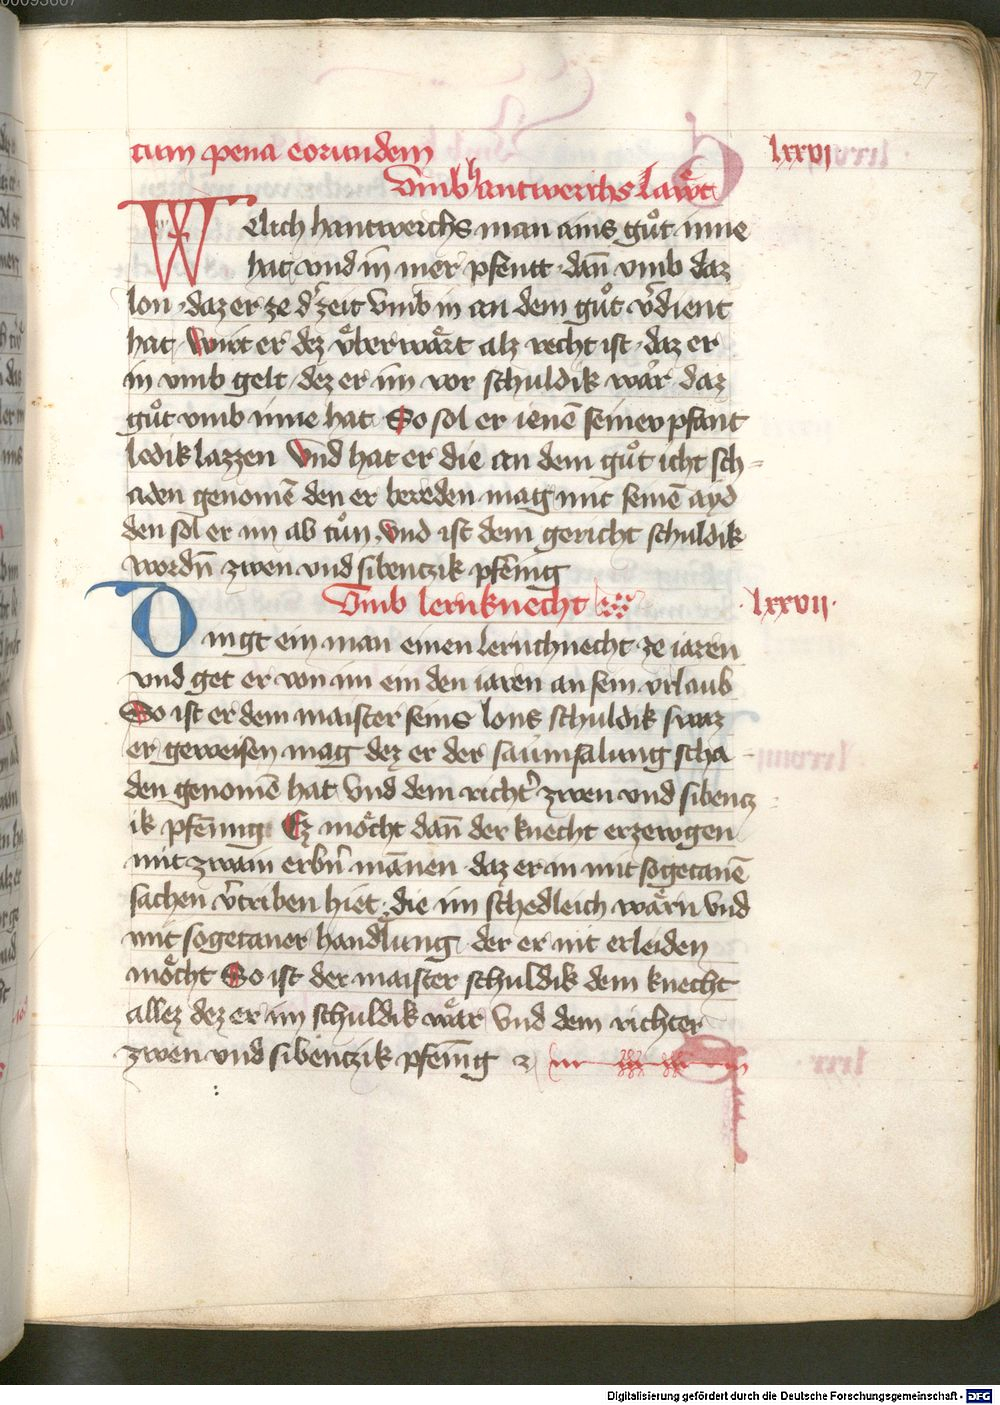 00093607
27
cum pena eorundem
lxxvi
Vmb hantwerchs lawt
Welich hantwerchs man ains guͦt inne
hat vnd in mer pfentt · dan̄ vmb daz
lon · daz er ze dˀ zeit vmb in an dem guͦt v̓dient
hat / Wirt er dez vͤberwaͤrt alz recht ist · daz er
in vmb gelt / dez er im vor schuldik waͤr / daz
guͦt vmb inne hat So sol er ienē seiner pfant
ledik lazzen Vnd hat er die an dem guͦt icht sch=
aden genomē den er bereden mag mit seinē ayd
den sol er im ab tuͦn / vnd ist dem gericht schuldik
wordn̄ zwen vnd sibenczik pfēnig
Vmb lernknecht
lxxvii·
Dingt ein man einen lernchnecht ze iaren
vnd get er von im ein den iaren an sein vrlaub
So ist er dem maister seins lons schuldik swaz
er geweisen mag dez er der saumsalung scha
den genomē hat Vnd dem richtˀ zwen vnd sibencz
ik pfēnnig Ez moͤcht dan̄ der knecht erzewgen
mit zwain erbn̄ mānen · daz er in mit sogetanē
sachen v̓triben hiet · die im schedleich waͤrn vnd
mit sogetaner handlung / der er nit erleiden
moͤcht So ist der maister schuldik dem knecht
allez dez er im schuldik waͤr Vnd dem richter
zwen vnd sibenczik pfēnig
Digitalisierung gefördert durch die Deutsche Forschungsgemeinschaft - DFG